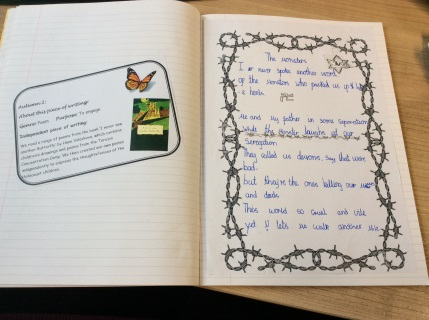 Autumn 2:
About this piece of writing:
Genre: Poem Purpose: To engage
Independent piece of writing
We read a range of poems from the book 'I never saw
another Butterfly' by Hana Volavkova, which contains
children's drawings and poems from the Terezin
Concentration Camp. We then created our own poems
independently to express the thoughts/voices of the
Holocaust children.
The monsters
I or never spoke another word
of the monsters who
a herd.
me and my father in some
while the monster laughs at our
They called us demons, say that were
bad.
but they're the ones killing our
and dads
This world so cruel and vile
yet it lets me walk another